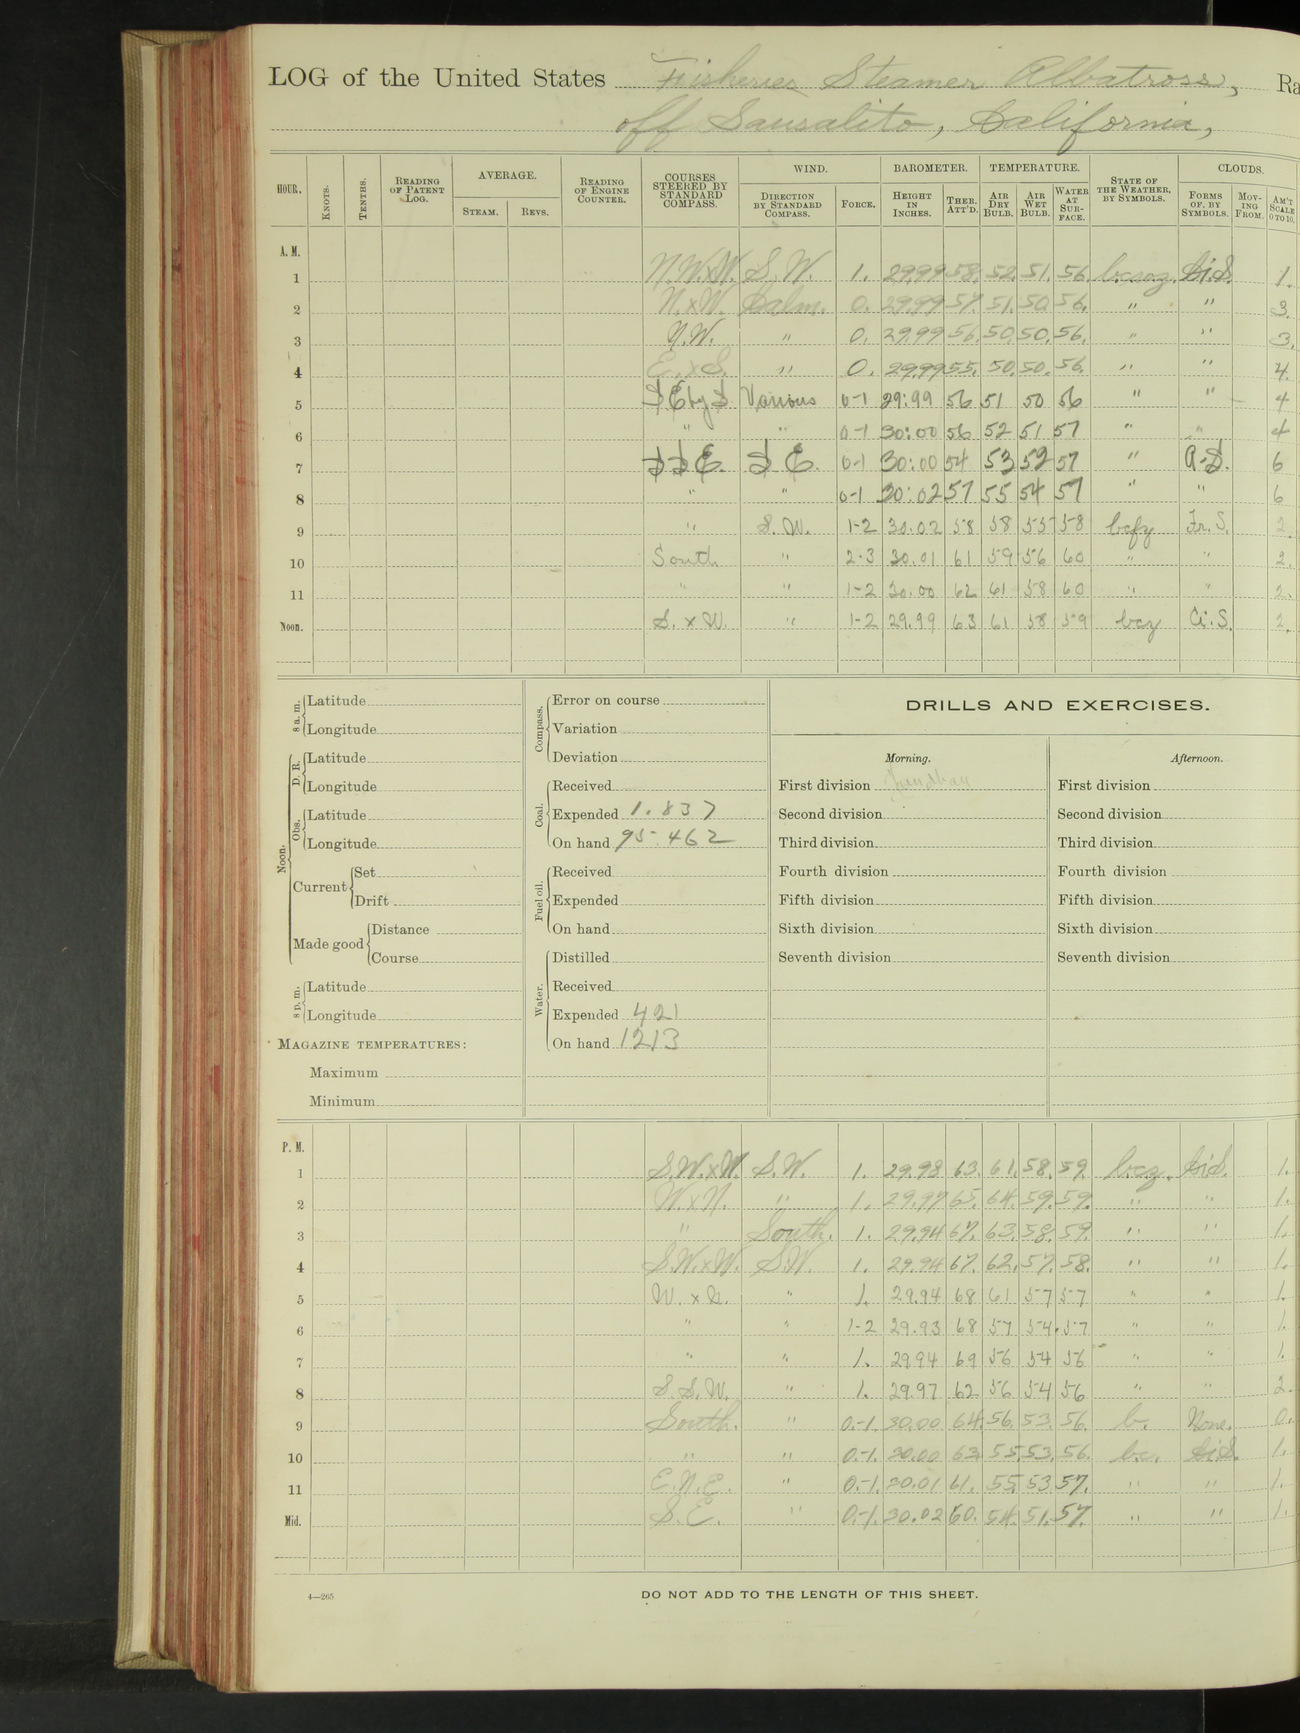 LOG of the United States Fisheries Steamer Albatross, Ra
off Sausalito, California,
HOUR. KNOTS. TENTHS. READING OF PATENT LOG. AVERAGE. STEAM. REVS. READING OF ENGINE COUNTER. COURSES STEERED BY STANDARD COMPASS. WIND. DIRECTION BY STANDARD COMPASS. FORCE. BAROMETER. HEIGHT IN INCHES. THER. ATT'D. TEMPERATURE. AIR DRY BULB. AIR WET BULB. WATER AT SURFACE. STATE OF THE WEATHER, BY SYMBOLS. CLOUDS. FORMS OF, BY SYMBOLS. MOVING FROM. AM'T SCALE 0 TO 10.
A. M.
1 N.W.xW. S.W. 1. 29.99 58. 52. 51. 56. Ci.S. 1.
2 N.xW. Calm. 0. 29.99 57. 51. 50. 56. " " 3.
3 N.W. " 0. 29.99 56. 50. 50. 56. " " 3.
4 E.xS. " 0. 29.99 55. 50. 50. 56. " " 4.
5 SE by S Various 0-1 29:99 56 51 50 56 " " 4
6 " " 0-1 30:00 56 52 51 57 " " 4
7 SSE. SE. 0-1 30:00 54 53 52 57 " A-S. 6
8 " " 0-1 30:02 57 55 54 57 " " 6
9 " S.W. 1-2 30.02 58 58 55 58 bcfz Fr.S. 2.
10 South " 2-3 30.01 61 59 56 60 " " 2.
11 " " 1-2 30.00 62 61 58 60 " " 2.
Noon. S.xW. " 1-2 29.99 63 61 58 59 bcz Ci.S. 2.
8 a. m. Latitude
Longitude
Noon. D. R. Latitude
Longitude
Obs. Latitude
Longitude
Current Set
Drift
Made good Distance
Course
8 p. m. Latitude
Longitude
MAGAZINE TEMPERATURES:
Maximum
Minimum
Compass. Error on course
Variation
Deviation
Coal. Received
Expended 1.837
On hand 95.462
Fuel oil. Received
Expended
On hand
Water. Distilled
Received
Expended 421
On hand 1213
DRILLS AND EXERCISES.
Morning.
First division Sunday
Second division
Third division
Fourth division
Fifth division
Sixth division
Seventh division
Afternoon.
First division
Second division
Third division
Fourth division
Fifth division
Sixth division
Seventh division
P. M.
1 S.W.xW. S.W. 1. 29.98 63. 61. 58. 59. bcz. Ci.S. 1.
2 W.xN. " 1. 29.97 65. 64. 59. 59. " " 1.
3 " South. 1. 29.94 67. 63. 58. 59. " " 1.
4 S.W.xW. S.W. 1. 29.94 67. 62. 57. 58. " " 1.
5 W.xS. " 1. 29.94 68 61 57 57 " " 1.
6 " " 1-2 29.93 68 57 54 57 " " 1.
7 " " 1. 29.94 69 56 54 56 " " 1.
8 S.S.W. " 1. 29.97 62 56 54 56 " " 2.
9 South. " 0.-1. 30.00 64. 56. 53. 56. b. None. 0.
10 " " 0.-1. 30.00 63. 55. 53. 56. bc. Ci.S. 1.
11 E.N.E. " 0.-1. 30.01 61. 55. 53. 57. " " 1.
Mid. S.E. " 0.-1. 30.02 60. 54. 51. 57. " " 1.
4—265
DO NOT ADD TO THE LENGTH OF THIS SHEET.